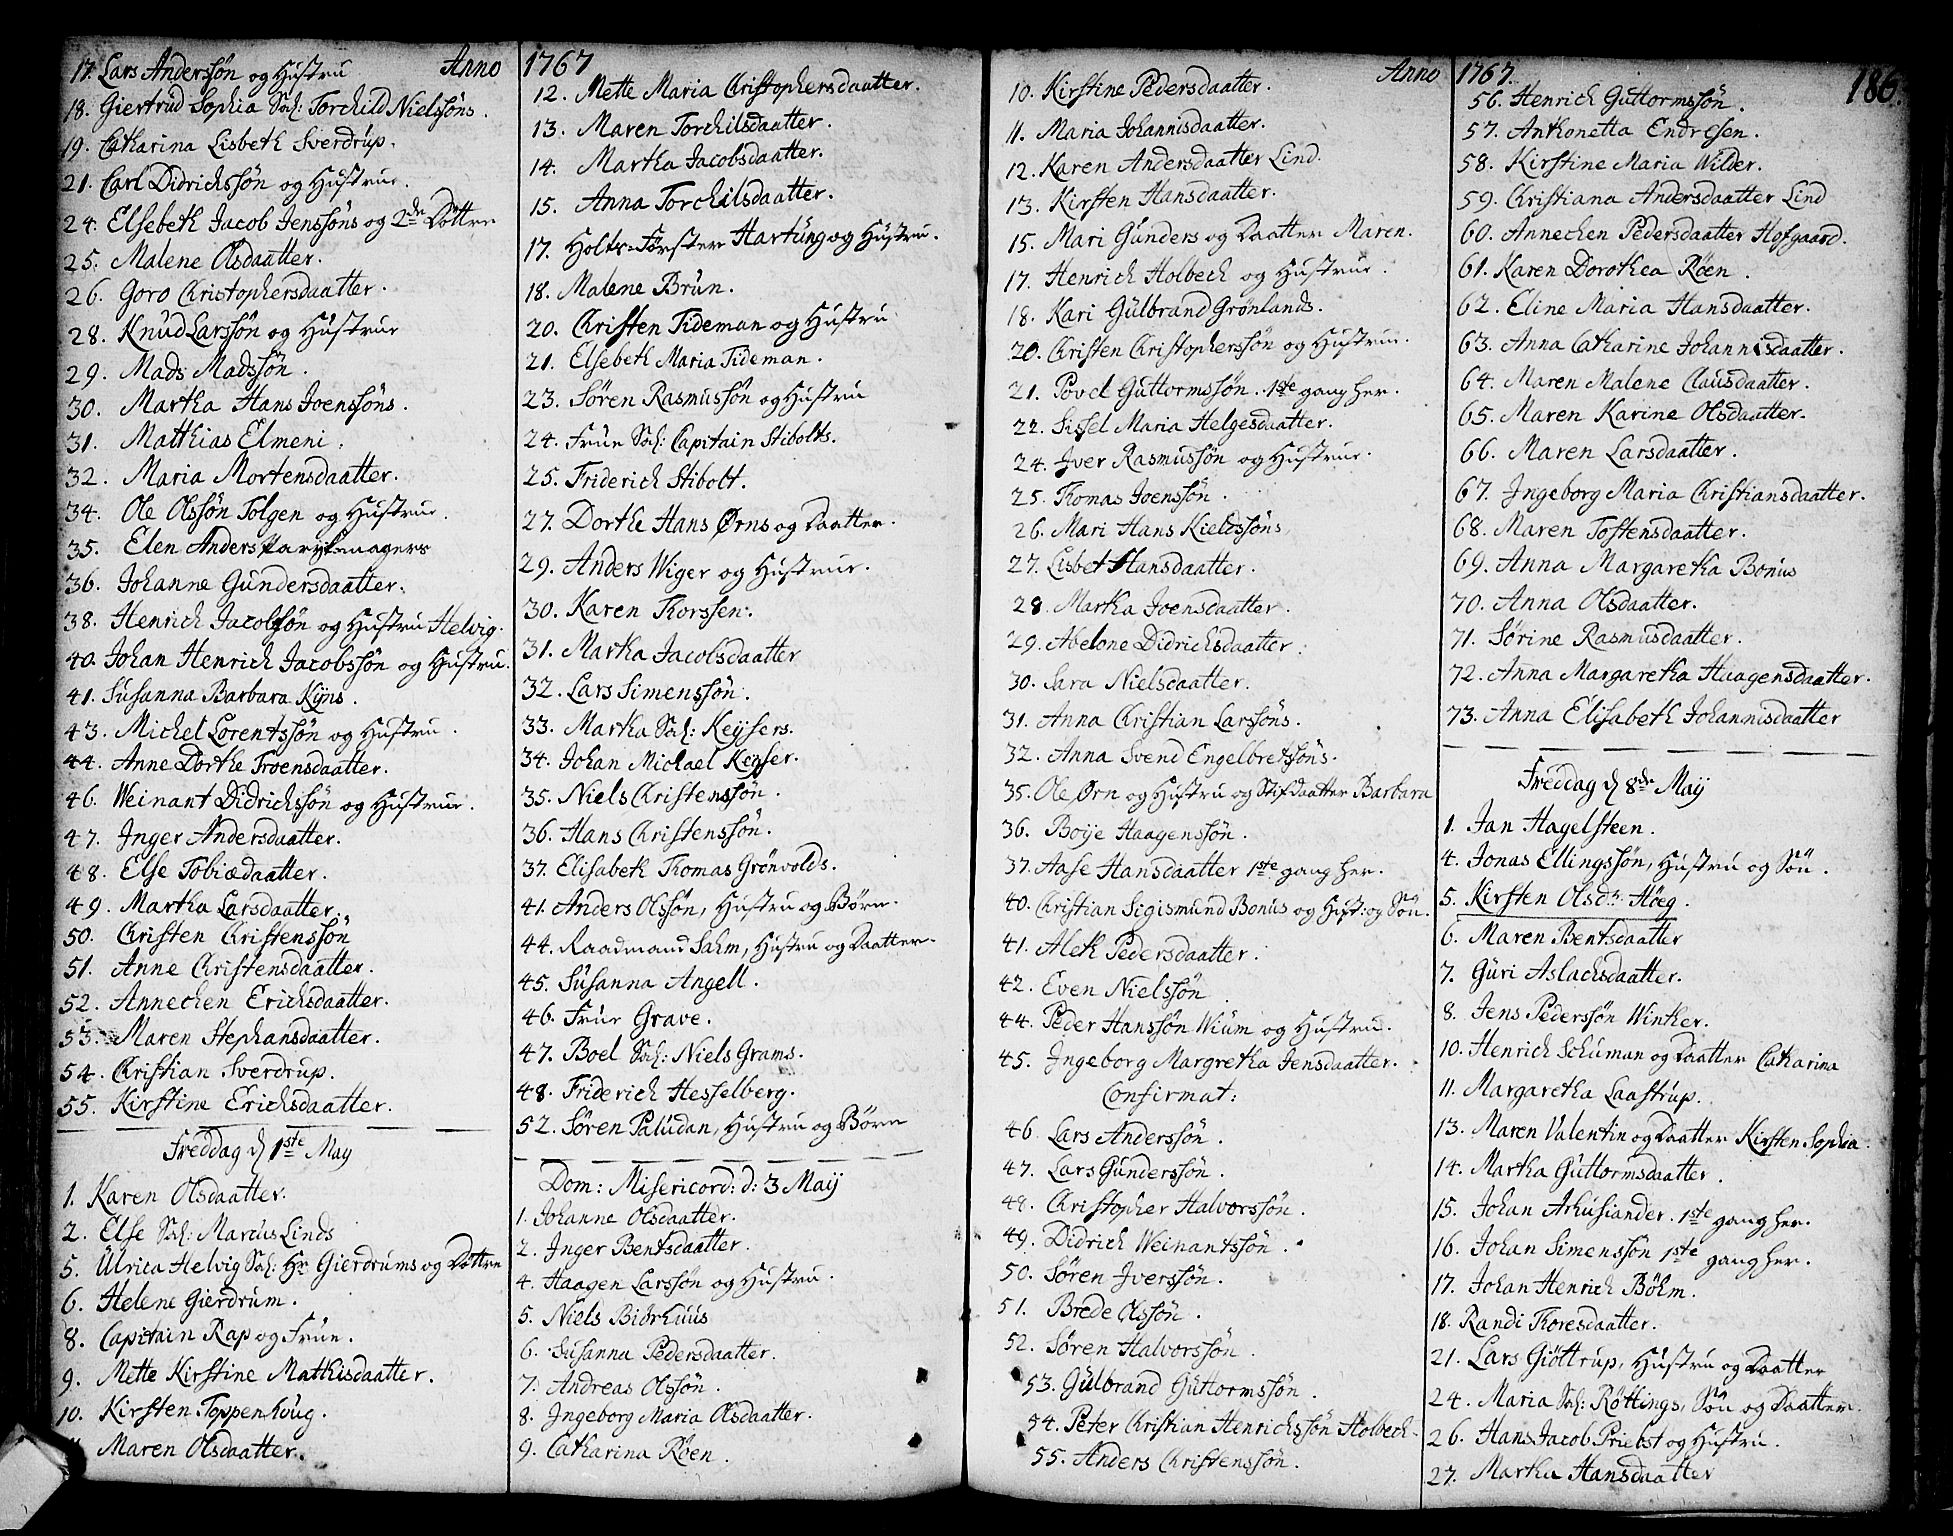 Anno 1767
17. Lars Anderssøn og Hustru
18. Giertrud Sophia Sal: Torchild Nielssøns.
19. Catharina Lisbeth Sverdrup.
21. Carl Didrichssøn og Hustrue.
24. Elsebeth Jacob Jenssøns og 2de Døttre
25. Malene Olsdaatter.
26. Goro Christophersdaatter.
28. Knud Larssøn og Hustrue
29. Mads Madssøn.
30. Martha Hans Joenssøns.
31. Matthias Elmeni.
32. Maria Mortensdaatter.
34. Ole Olssøn Tolgen og Hustrue.
35. Elen Anders Parykmagers
36. Johanne Gundersdaatter.
38. Henrich Jacobssøn og Hustru Helvig.
40. Johan Henrich Jacobssøn og Hustru.
41. Susanna Barbara Kyns.
43. Michel Lorentssøn og Hustru.
44. Anne Dorthe Troensdaatter.
46. Weinant Didrichssøn og Hustrue.
47. Inger Andersdaatter.
48. Else Tobiædaatter.
49. Martha Larsdaatter.
50. Christen Christenssøn
51. Anne Christensdaatter.
52. Annechen Erichsdaatter.
53. Maren Stephansdaatter.
54. Christian Sverdrup.
55. Kirstine Erichsdaatter.
Freddag d 1ste May
1. Karen Olsdaatter.
2. Else Sal: Marcus Linds
5. Ulrica Helvig Sal: Hr Gierdrums og Døttre
6. Helene Gierdrum.
8. Capitain Rap og Frue.
9. Mette Kirstine Mathisdaatter.
10. Kirsten Toppenhoug.
11. Maren Olsdaatter.
12. Mette Maria Christophersdaatter.
13. Maren Torchilsdaatter.
14. Martha Jacobsdaatter.
15. Anna Torchilsdaatter.
17. Holts-Førster Hartung og Hustru.
18. Malene Brun.
20. Christen Tideman og Hustru
21. Elsebeth Maria Tideman.
23. Søren Rasmussøn og Hustru
24. Frue Sal: Capitain Stibolts.
25. Friderich Stibolt.
27. Dorthe Hans Ørns og Daatter.
29. Anders Wiger og Hustrue.
30. Karen Thorssen.
31. Martha Jacobsdaatter
32. Lars Simenssøn.
33. Martha Sal: Keysers.
34. Johan Michael Keyser.
35. Niels Christenssøn.
36. Hans Christenssøn.
37. Elisabeth Thomas Grønvolds.
41. Anders Olssøn, Hustru og Børn.
44. Raadmand Sahm, Hustru og Daatter.
45. Susanna Angell.
46. Frue Grave.
47. Boel Sal: Niels Grams.
48. Friderich Hesselberg.
52. Søren Paludan, Hustru og Børn
Dom: Misericord: d: 3 Maij
1. Johanne Olsdaatter.
2. Inger Bentsdaatter.
4. Haagen Larssøn og Hustru.
5. Niels Biørhuus
6. Susanna Pedersdaatter.
7. Andreas Olssøn.
8. Ingeborg Maria Olsdaatter.
9. Catharina Røen.
Anno 1767.
186.
10. Kirstine Pedersdaatter.
11. Maria Johannisdaatter.
12. Karen Andersdaatter Lind.
13. Kirsten Hansdaatter.
15. Mari Gunders og Daatter Maren.
17. Henrich Holbech og Hustrue.
18. Kari Gulbrand Grønlands.
20. Christen Christopherssøn og Hustrue.
21. Povel Guttormssøn. 1ste gang her.
22. Sissel Maria Helgesdaatter.
24. Iver Rasmussøn og Hustrue.
25. Thomas Joenssøn.
26. Mari Hans Kieldssøns
27. Lisbet Hansdaatter.
28. Martha Joensdaatter.
29. Abelone Didrichsdaatter.
30. Sara Nielsdaatter.
31. Anna Christian Larssøns.
32. Anna Svend Engelbretsøns.
35. Ole Ørn og Hustru og Stifdaatter Barbara
36. Boye Haagenssøn.
37. Aase Hansdaatter 1ste gang her.
40. Christian Sigismund Bonus og Hust: og Søn.
41. Aleth Pedersdaatter.
42. Even Nielssøn
44. Peder Hanssøn Wium og Hustru.
45. Ingeborg Margretha Jensdaatter.
Confirmat:
46. Lars Anderssøn.
47. Lars Gunderssøn.
48. Christopher Halvorssøn.
49. Didrich Weinantssøn.
50. Søren Iverssøn.
51. Brede Olssøn.
52. Søren Halvorssøn.
53. Gulbrand Guttormssøn.
54. Peter Christian Henrichssøn Holbech.
55. Anders Christenssøn.
56. Henrich Guttormssøn.
57. Anthonetta Endresen.
58. Kirstine Maria Wilder.
59. Christiana Andersdaatter Lind
60. Annechen Pedersdaatter Hofgaard.
61. Karen Dorothea Røen.
62. Eline Maria Hansdaatter.
63. Anna Catharine Johannisdaatter.
64. Maren Malene Clausdaatter.
65. Maren Karine Olsdaatter.
66. Maren Larsdaatter.
67. Ingeborg Maria Christiansdaatter.
68. Maren Tostensdaatter.
69. Anna Margaretha Bonus
70. Anna Olsdaatter.
71. Sørine Rasmusdaatter.
72. Anna Margaretha Haagensdaatter.
73. Anna Elisabeth Johannisdaatter
Freddag d 8de May
1. Jan Hagelsteen.
4. Jonas Ellingssøn, Hustru og Søn.
5. Kirsten Olsdr. Høeg.
6. Maren Bentsdaatter
7. Guri Aslachsdaatter.
8. Jens Pederssøn Winther.
10. Henrich Schuman og Daatter Catharina
11. Margaretha Laastrup.
13. Maren Valentin og Daatter Kirsten Sophia.
14. Martha Guttormsdaatter.
15. Johan Arhusiander. 1ste gang her.
16. Johan Simenssøn 1ste gang her.
17. Johan Henrich Bøhm.
18. Randi Thoresdaatter.
21. Lars Giøttrup, Hustru og Daatter
24. Maria Sal: Røttings, Søn og Daatter.
26. Hans Jacob Priebst og Hustru.
27. Martha Hansdaatter